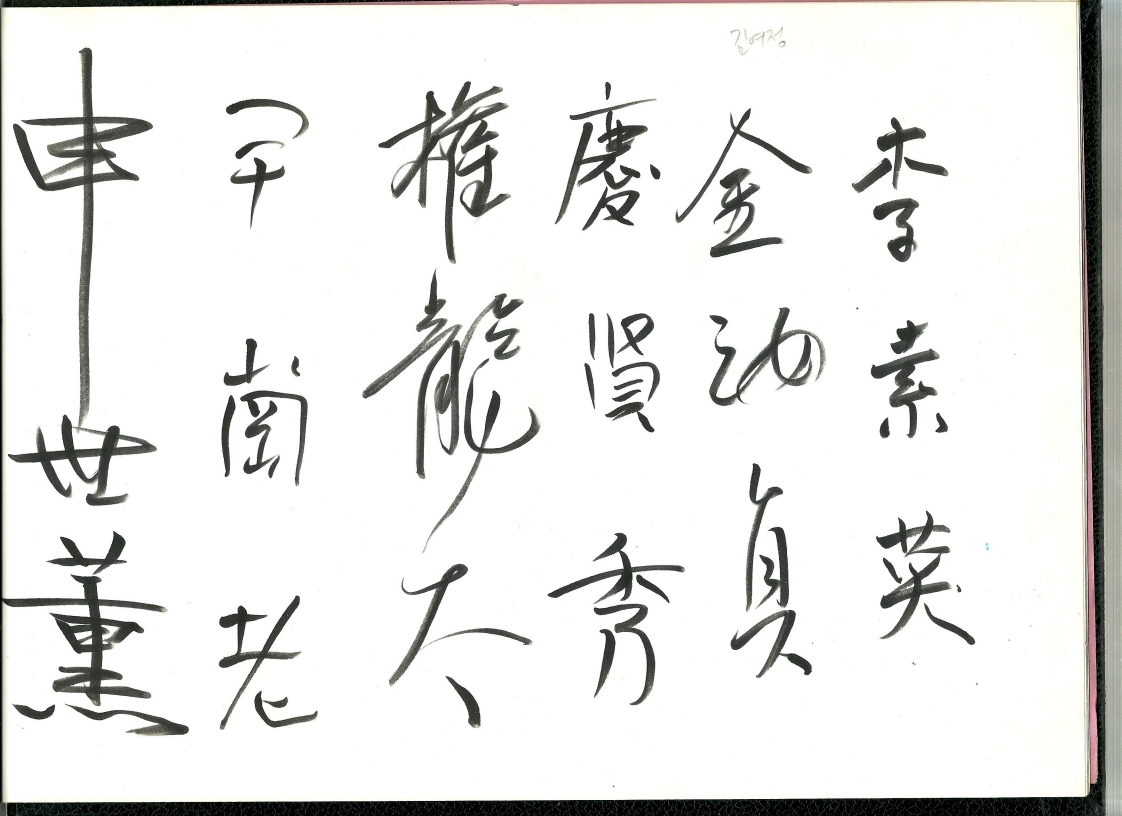 김여정
李素英
金汝貞
慶賢秀
權龍太
尹崗老
申世薰